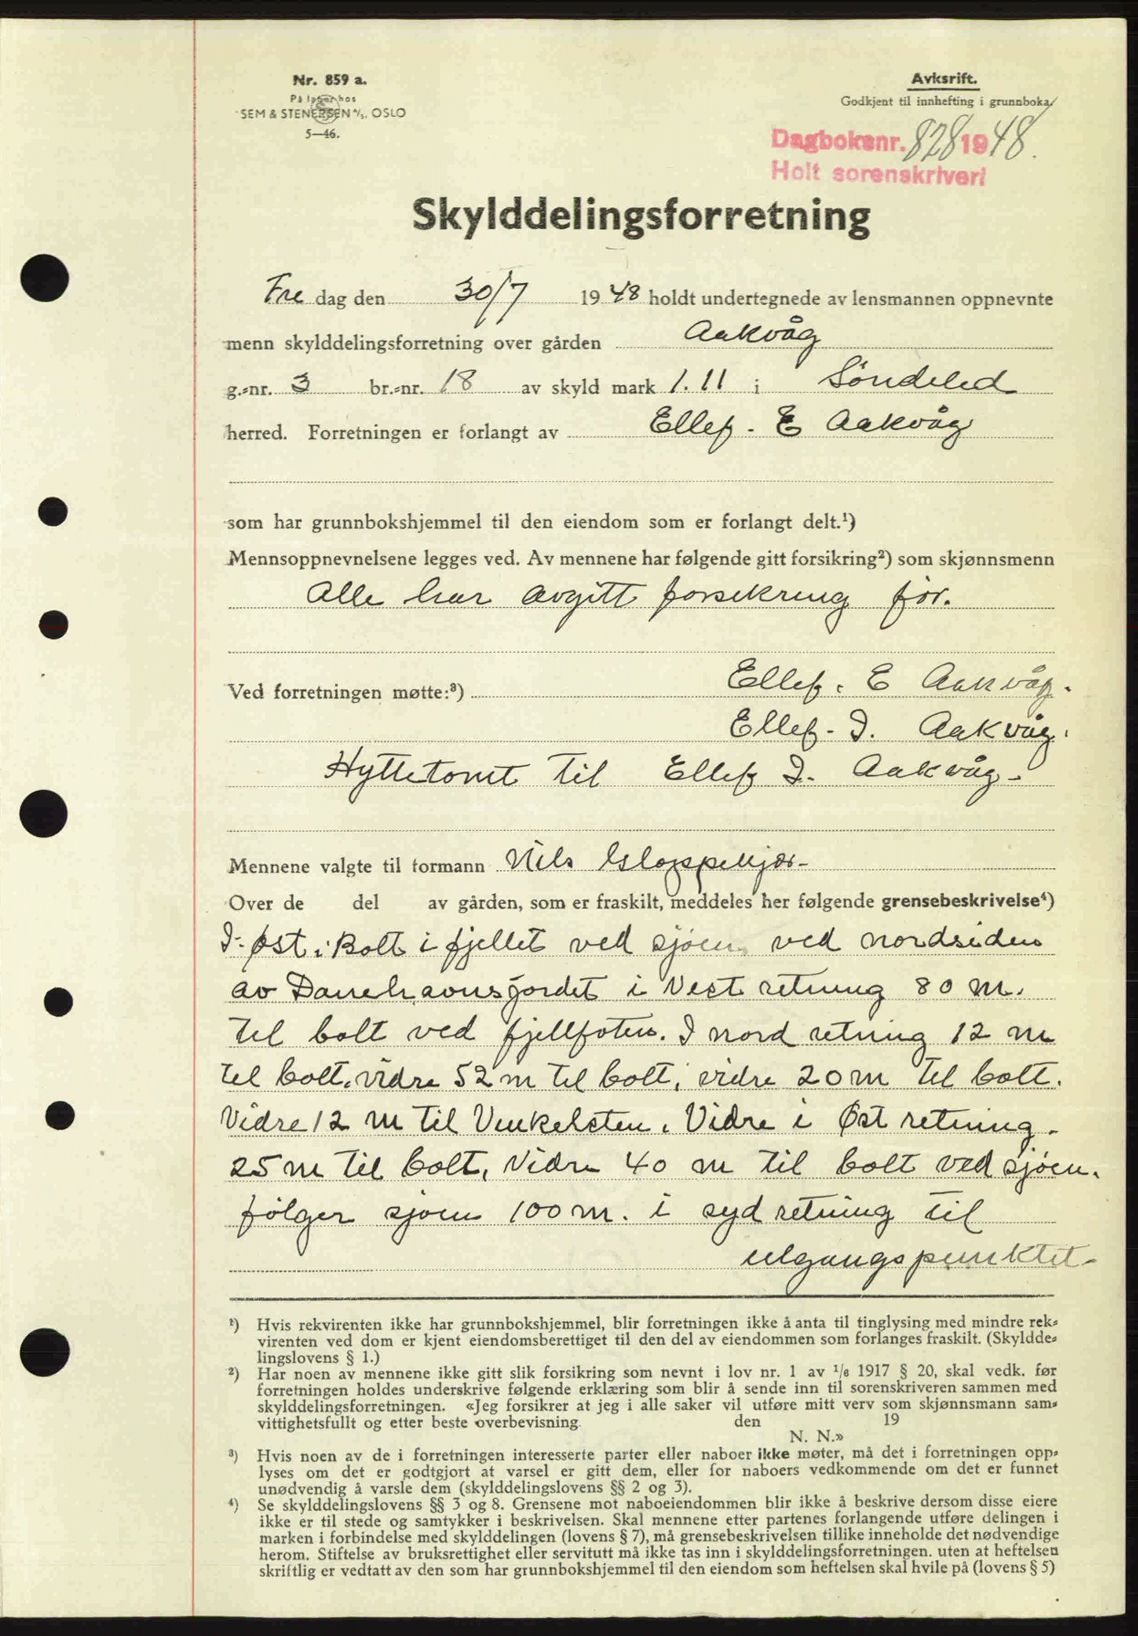 Nr. 859 a.
På lager hos
SEM & STENERSEN A/S. OSLO
5—46.
Avksrift.
Godkjent til innhefting i grunnboka.
Dagboksnr. 828 1948.
Holt sorenskriveri
Skylddelingsforretning
Fre dag den 30/7 1948 holdt undertegnede av lensmannen oppnevnte
menn skylddelingsforretning over gården Aakvåg
g.-nr. 3 br.-nr. 18 av skyld mark 1.11 i Söndeled
herred. Forretningen er forlangt av Ellef. E Aakvåg
som har grunnbokshjemmel til den eiendom som er forlangt delt.¹)
Mennsoppnevnelsene legges ved. Av mennene har følgende gitt forsikring²) som skjønnsmenn
Alle har avgitt forsikring för.
Ved forretningen møtte:³) Ellef. E Aakvåg.
Ellef. I. Aakvåg.
Hyttetomt til Ellef I. Aakvåg.
Mennene valgte til formann Nils
Over de del av gården, som er fraskilt, meddeles her følgende grensebeskrivelse⁴)
I. Øst: Bolt i fjellet ved sjöen ved nordsiden
av Danehavnsjordet i Vest retning 80 m.
til bolt ved fjellfoten. I nord retning 12 m
til bolt, vidre 52 m til bolt, vidre 20 m til bolt.
Vidre 12 m til Vinkelsten. Vidre i Øst retning.
25 m til bolt. Vidre 40 m til bolt ved sjöen.
följer sjöen 100 m. i syd retning til
utgangspunktet.
¹) Hvis rekvirenten ikke har grunnbokshjemmel, blir forretningen ikke å anta til tinglysing med mindre rek-
virenten ved dom er kjent eiendomsberettiget til den del av eiendommen som forlanges fraskilt. (Skyldde-
lingslovens § 1.)
²) Har noen av mennene ikke gitt slik forsikring som nevnt i lov nr. 1 av 1/8 1917 § 20, skal vedk. før
forretningen holdes underskrive følgende erklæring som blir å sende inn til sorenskriveren sammen med
skylddelingsforretningen. «Jeg forsikrer at jeg i alle saker vil utføre mitt verv som skjønnsmann sam-
vittighetsfullt og etter beste overbevisning den 19
N. N.»
³) Hvis noen av de i forretningen interesserte parter eller naboer ikke møter, må det i forretningen opp-
lyses om det er godtgjort at varsel er gitt dem, eller for naboers vedkommende om det er funnet
unødvendig å varsle dem (skylddelingslovens §§ 2 og 3).
⁴) Se skylddelingslovens §§ 3 og 8. Grensene mot naboeiendommen blir ikke å beskrive dersom disse eiere
ikke er til stede og samtykker i beskrivelsen. Skal mennene etter partenes forlangende utføre delingen i
marken i forbindelse med skylddelingen (lovens § 7), må grensebeskrivelsen tillike inneholde det nødvendige
herom. Stiftelse av bruksrettighet eller servitutt må ikke tas inn i skylddelingsforretningen. uten at heftelsen
skriftlig er vedtatt av den som har grunnbokshjemmel til den eiendom som heftelsen skal hvile på (lovens § 5)